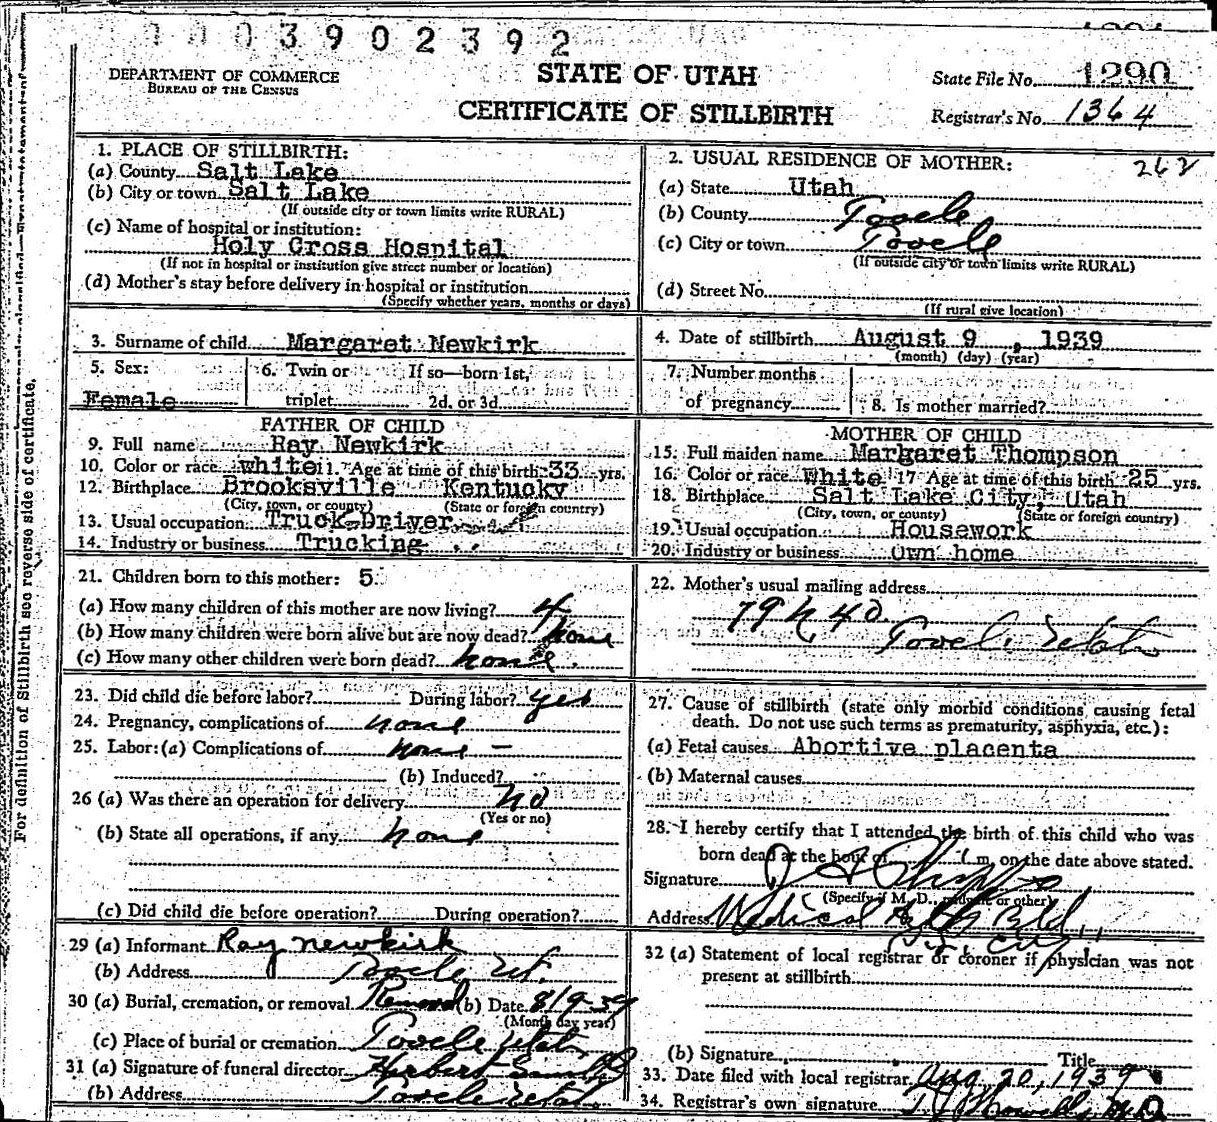 0003902392
DEPARTMENT OF COMMERCE
BUREAU OF THE CENSUS
STATE OF UTAH
CERTIFICATE OF STILLBIRTH
State File No. 1290
Registrar's No. 1364
1. PLACE OF STILLBIRTH:
(a) County Salt Lake
(b) City or town Salt Lake
(If outside city or town limits write RURAL)
(c) Name of hospital or institution:
Holy Cross Hospital
(If not in hospital or institution give street number or location)
(d) Mother's stay before delivery in hospital or institution
(Specify whether years, months or days)
2. USUAL RESIDENCE OF MOTHER: 262
(a) State Utah
(b) County Tooele
(c) City or town Tooele
(If outside city or town limits write RURAL)
(d) Street No.
(If rural give location)
3. Surname of child Margaret Newkirk
4. Date of stillbirth August 9, 1939
(month) (day) (year)
5. Sex:
Female
6. Twin or If so—born 1st,
triplet 2d, or 3d
7. Number months
of pregnancy
8. Is mother married?
FATHER OF CHILD
9. Full name Ray Newkirk
10. Color or race white 11. Age at time of this birth 33 yrs.
12. Birthplace Brooksville Kentucky
(City, town, or county) (State or foreign country)
13. Usual occupation Truck Driver
14. Industry or business Trucking
MOTHER OF CHILD
15. Full maiden name Margaret Thompson
16. Color or race White 17 Age at time of this birth 25 yrs.
18. Birthplace Salt Lake City, Utah
(City, town, or county) (State or foreign country)
19. Usual occupation Housework
20. Industry or business Own home
21. Children born to this mother: 5
(a) How many children of this mother are now living? 4
(b) How many children were born alive but are now dead? none
(c) How many other children were born dead? none.
22. Mother's usual mailing address
79 N 40.
Tooele Utah
23. Did child die before labor? During labor? yes
24. Pregnancy, complications of none
25. Labor: (a) Complications of none –
(b) Induced?
26 (a) Was there an operation for delivery no
(Yes or no)
(b) State all operations, if any none
(c) Did child die before operation? During operation?
27. Cause of stillbirth (state only morbid conditions causing fetal
death. Do not use such terms as prematurity, asphyxia, etc.):
(a) Fetal causes Abortive placenta
(b) Maternal causes
28. I hereby certify that I attended the birth of this child who was
born dead at the hour of m, on the date above stated.
Signature
(Specify if M. D., midwife or other)
Address Medical Arts Bld.,
City
29 (a) Informant Ray Newkirk
(b) Address Tooele Ut.
30 (a) Burial, cremation, or removal Removal (b) Date 8/9-39
(Month day year)
(c) Place of burial or cremation Tooele Utah
31 (a) Signature of funeral director Herbert
(b) Address Tooele Utah.
32 (a) Statement of local registrar or coroner if physician was not
present at stillbirth
(b) Signature Title
33. Date filed with local registrar Aug. 20, 1939
34. Registrar's own signature T J Howells M.D.
For definition of stillbirth see reverse side of certificate.